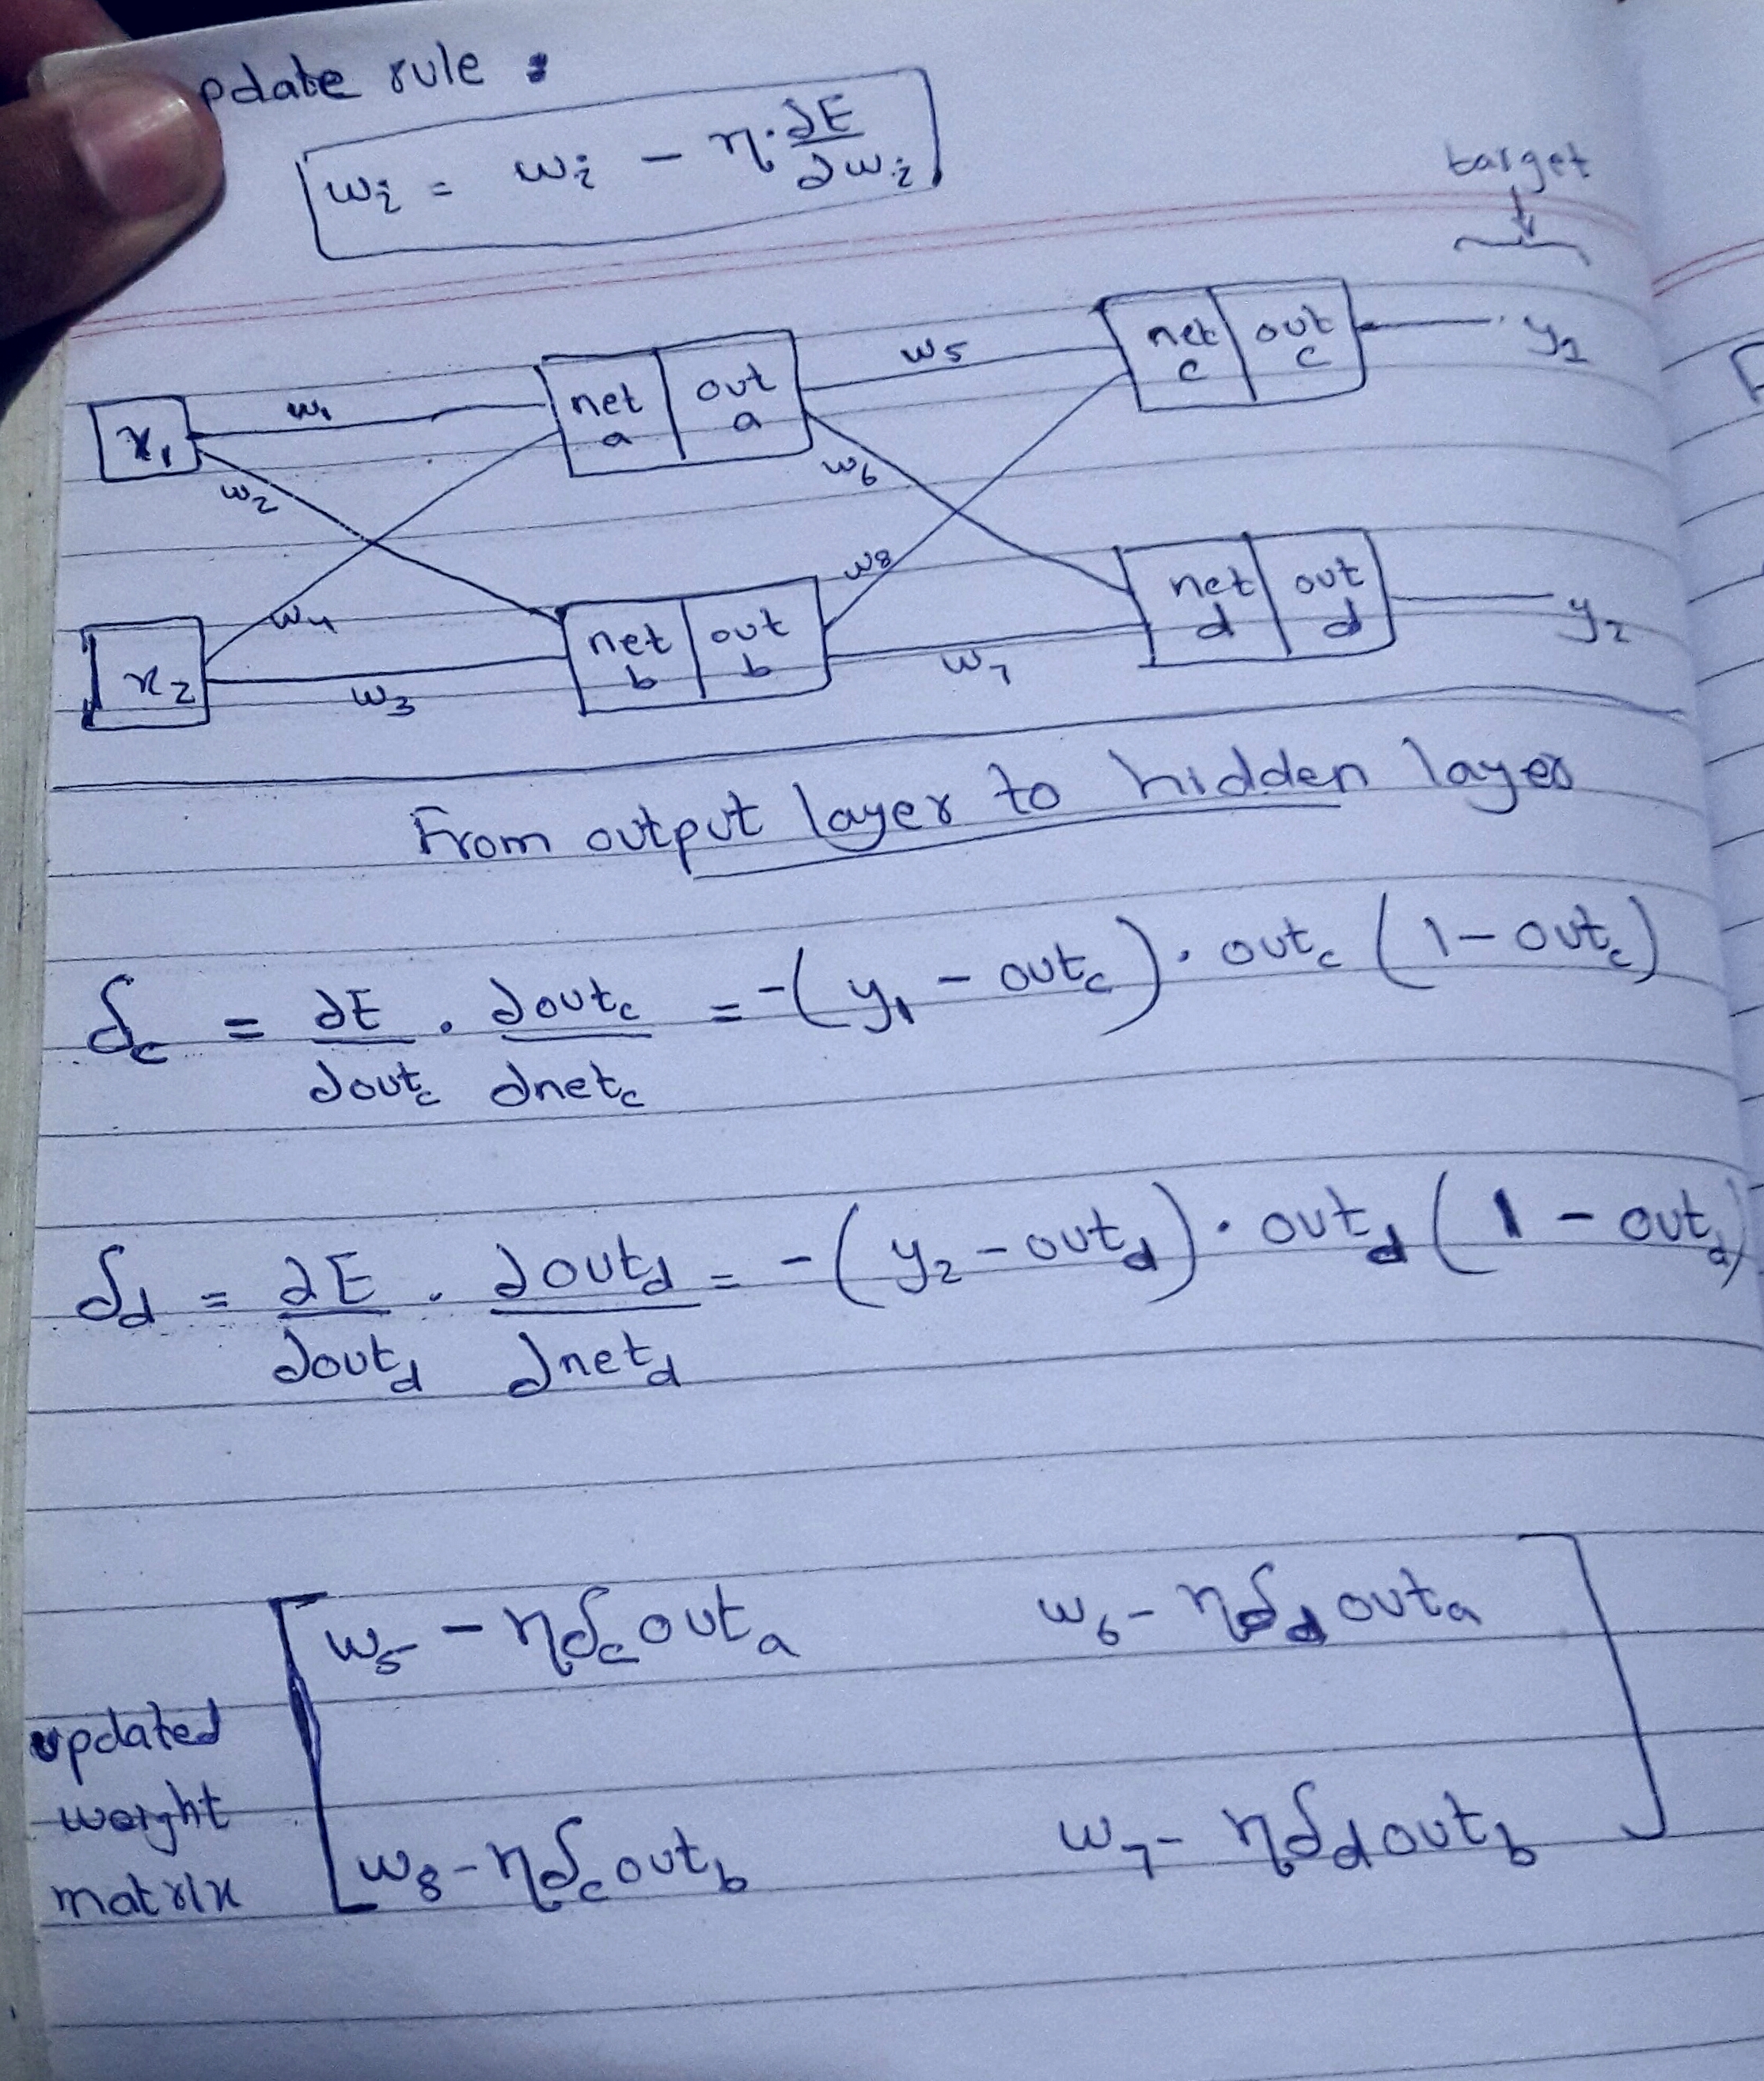 pdate rule :
wi = wi - η · ∂E/∂wi
target
x1 w1 net a out a w5 net c out c y1
w2 w6
w4 w8
x2 w3 net b out b w7 net d out d y2
From output layer to hidden layer
δc = ∂E/∂outc . ∂outc/∂netc = -(y1 - outc) . outc (1 - outc)
δd = ∂E/∂outd . ∂outd/∂netd = -(y2 - outd) . outd (1 - outd)
w5 - ηδc outa w6 - ηδd outa
updated
weight
matrix
w8 - ηδc outb w7 - ηδd outb